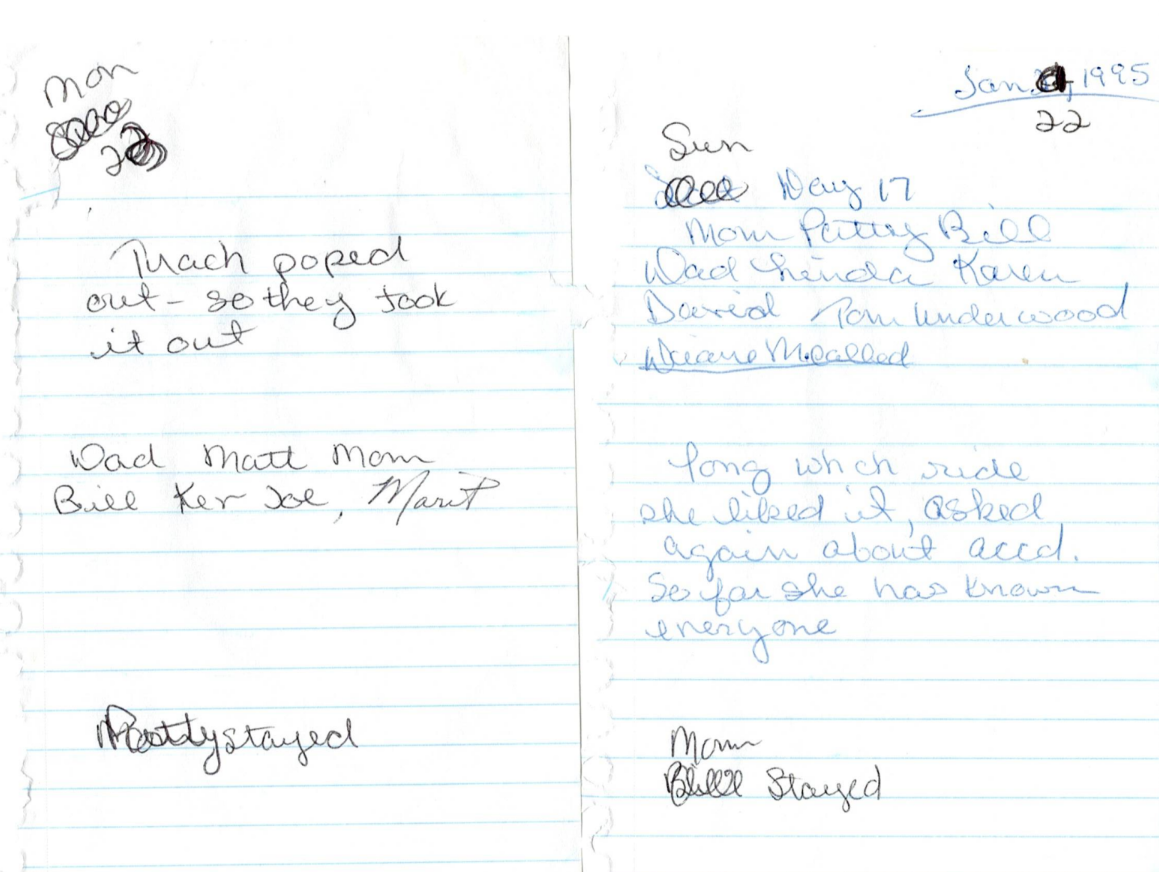 Mon
22
Trach poped
out - so they took
it out
Dad Matt Mom
Bill Ker Joe, Marit
Patty stayed
Jan. 1995
22
Sun
Day 17
Mom Patty Bill
Dad Linda Karen
David Tom Underwood
Diane McCalled
long whch ride
she liked it, asked
again about accd.
So far she has known
everyone
Mom
Bill Stayed